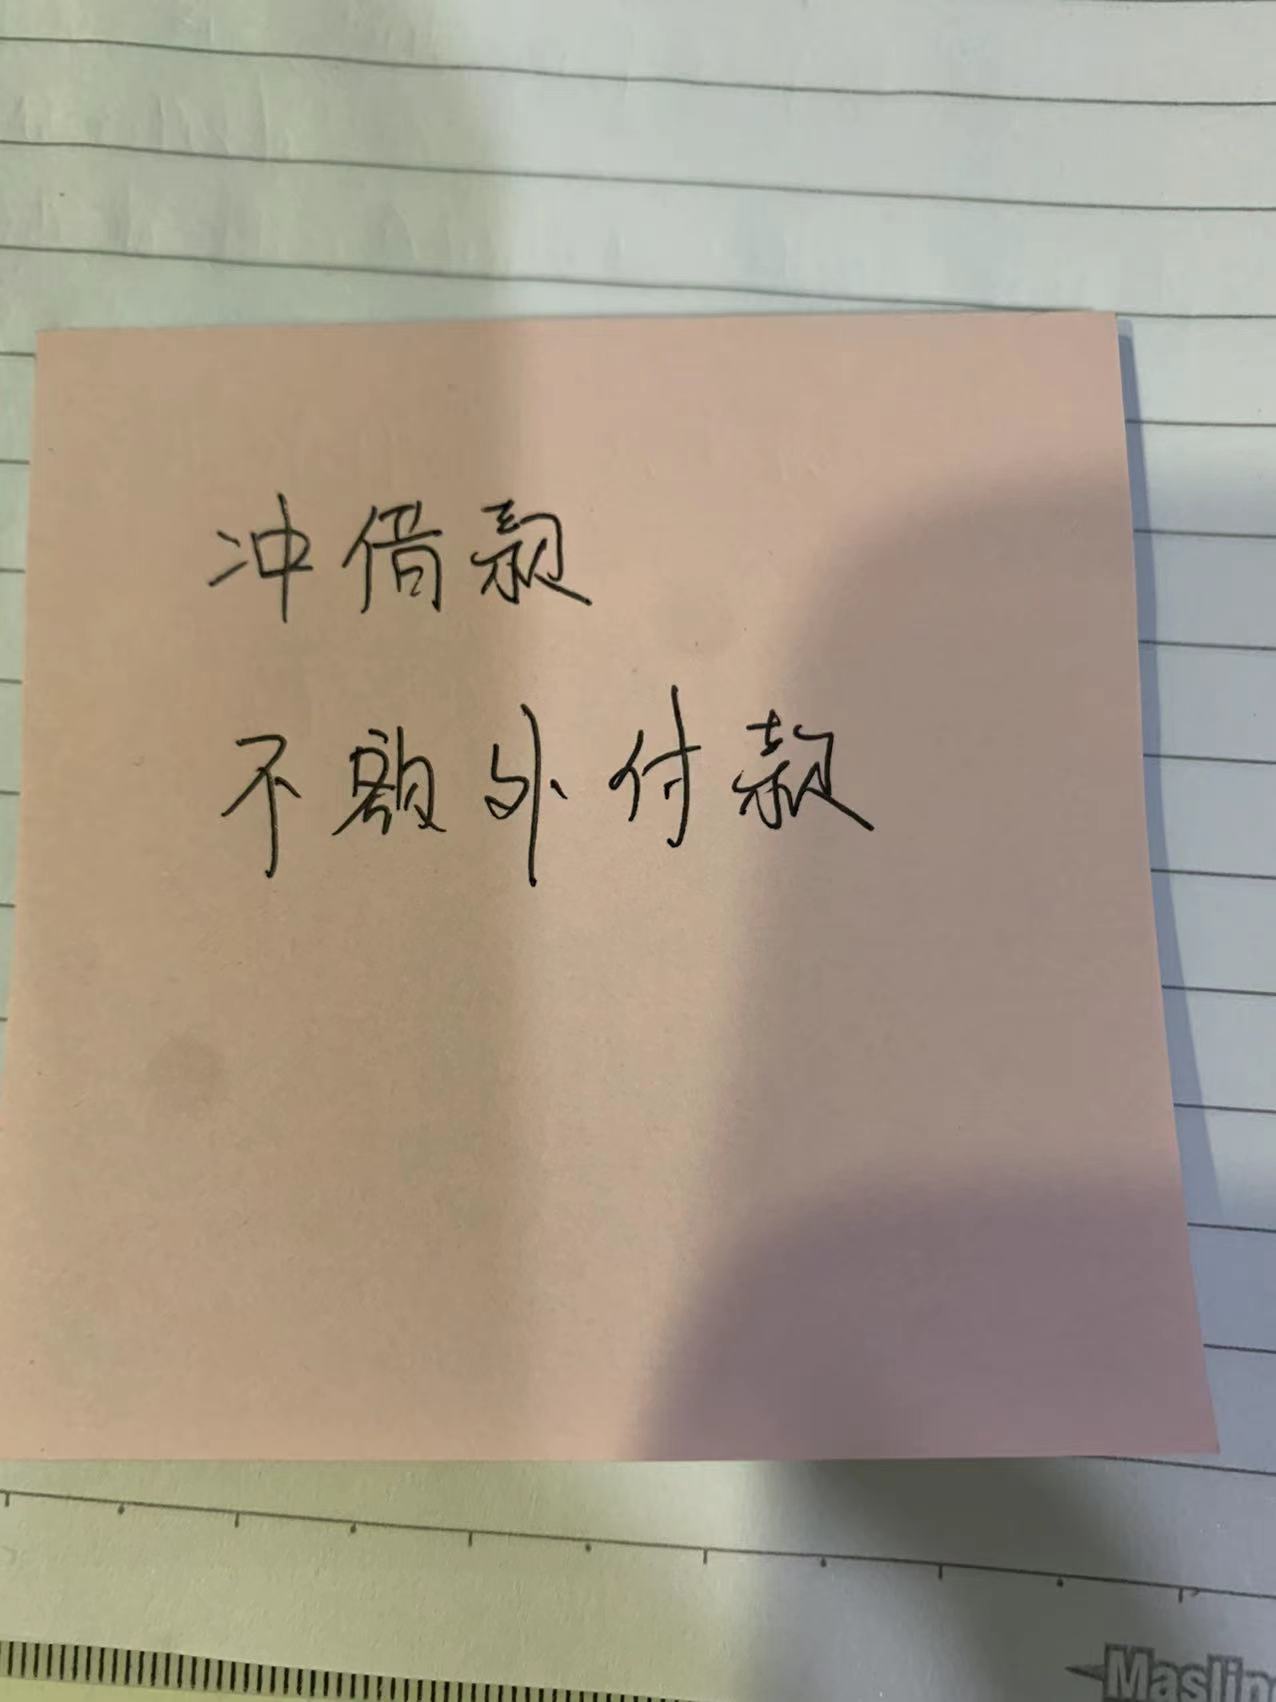 冲借款
不额外付款